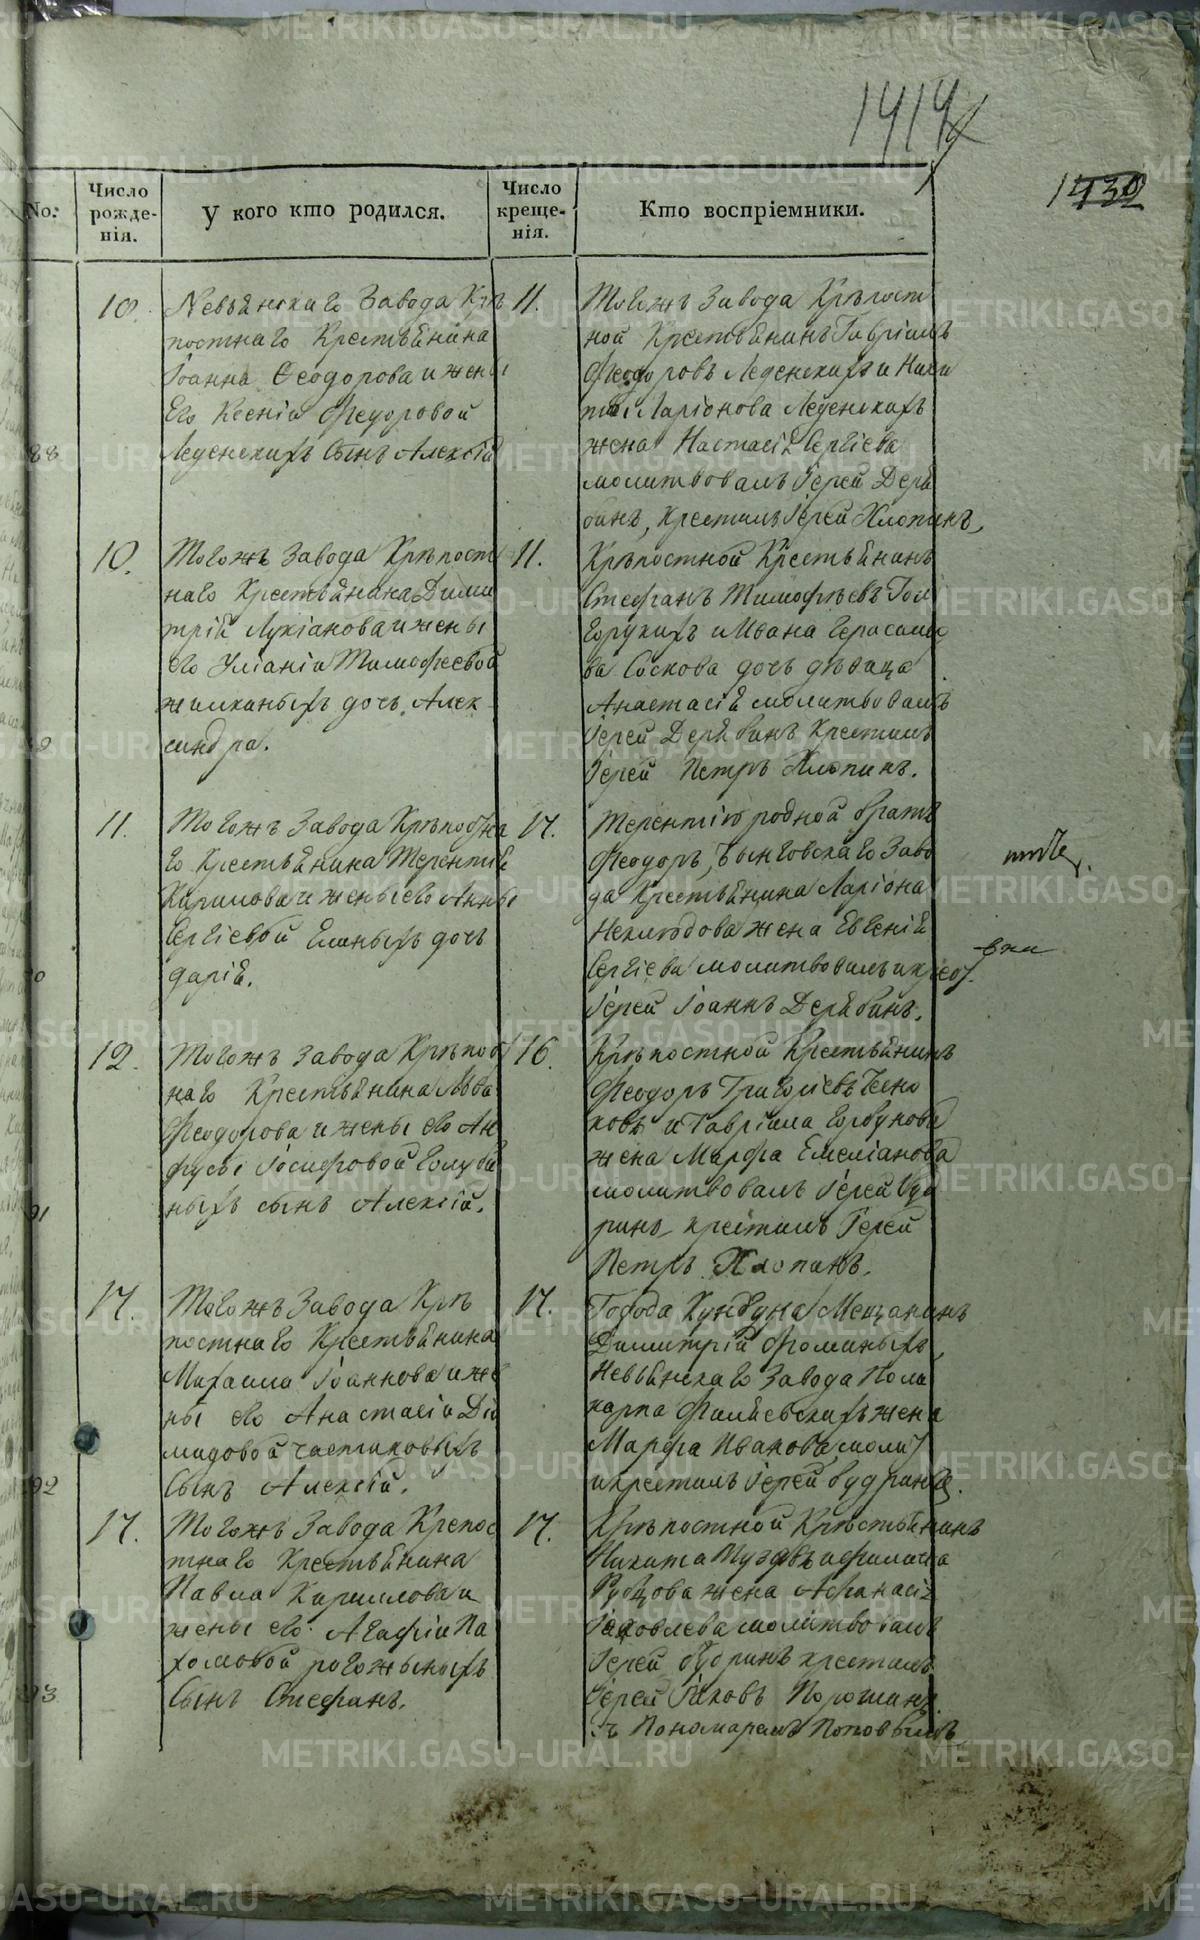 1414
1430
No:
Число рожде-нія.
У кого кто родился.
Число креще-нія.
Кто воспріемники.
10.
Невьянскаго Завода Крѣ
постнаго Крестьянина
Іоанна Ѳеодорова и жены
Его Ксеніи Феодоровой
Леденскихъ Сынъ Алексій
11.
Тогожъ Завода Крѣпост
ной Крестьянинъ Гавріилъ
Феодоровъ Леденскихъ и Ники
ты Ларіонова Леденскихъ
жена Настасія Сергіева
молитвовалъ Іерей Деря
бинъ, Крестилъ Іерей Хлопинъ,
88
10.
Тогожъ Завода Крѣпост
наго Крестьянина Дими
трій Лукіанова и жены
его Уліаніи Тимофеевой
жилкиныхъ дочь Алек
сандра.
11.
Крѣпостной Крестьянинъ
Стефанъ Тимофѣевъ
и Ивана Герасимо
ва Соскова дочь дѣвица
Анастасія молитвовалъ
Іерей Дерябинъ Крестилъ
Іерей Петръ Хлопинъ.
11.
Тогожъ Завода Крѣпостна
го Крестьянина Терентія
Кирилова и жены его Анны
Сергіевой Еланыхъ дочь
дарія.
17.
Терентію родной братъ
Феодоръ, Быньговскаго Заво
да Крестьянина Ларіона
Неклюдова жена Евгенія
Сергіева молитвовалъ и крест.
Іерей Іоаннъ Дерябинъ.
12.
Тогожъ Завода Крѣпост
наго Крестьянина Льва
Феодорова и жены его Ан
фусы Іосифовой Голубя
ныхъ сынъ Алексій.
16.
Крѣпостной Крестьянинъ
Феодоръ Григоріевъ Чесно
ковъ и Гавріила Горбунова
жена Марфа Емеліанова
молитвовалъ Іерей Буд
ринъ крестилъ Іерей
Петръ Хлопинъ.
91
17.
Тогожъ Завода Крѣ
постнаго Крестьянина
Михаила Іоаннова и же
ны его Анастасіи Діо
мидовой частиковыхъ
Сынъ Алексій.
17.
Города Кунгура Мещанинъ
Димитрій Фоминыхъ,
Невьянскаго Завода Поли
карпа Филяевскихъ жена
Марфа Иванова, молит
и крестилъ Іерей Будринъ.
92
17.
Тогожъ Завода Крепос
тнаго Крестьянина
Павла Кирилова и
жены его Агафіи Па
хомовой рогожныхъ
Сынъ Стефанъ.
17.
Крѣпостной Крѣстьянинъ
Никита и филипа
Рубцова жена Афанасія
Іаковлева молитвовалъ
Іерей Будринъ крестилъ
Іерей Іаковъ Порошинъ
съ Пономаремъ Поповымъ
93
METRIKI.GASO-URAL.RU